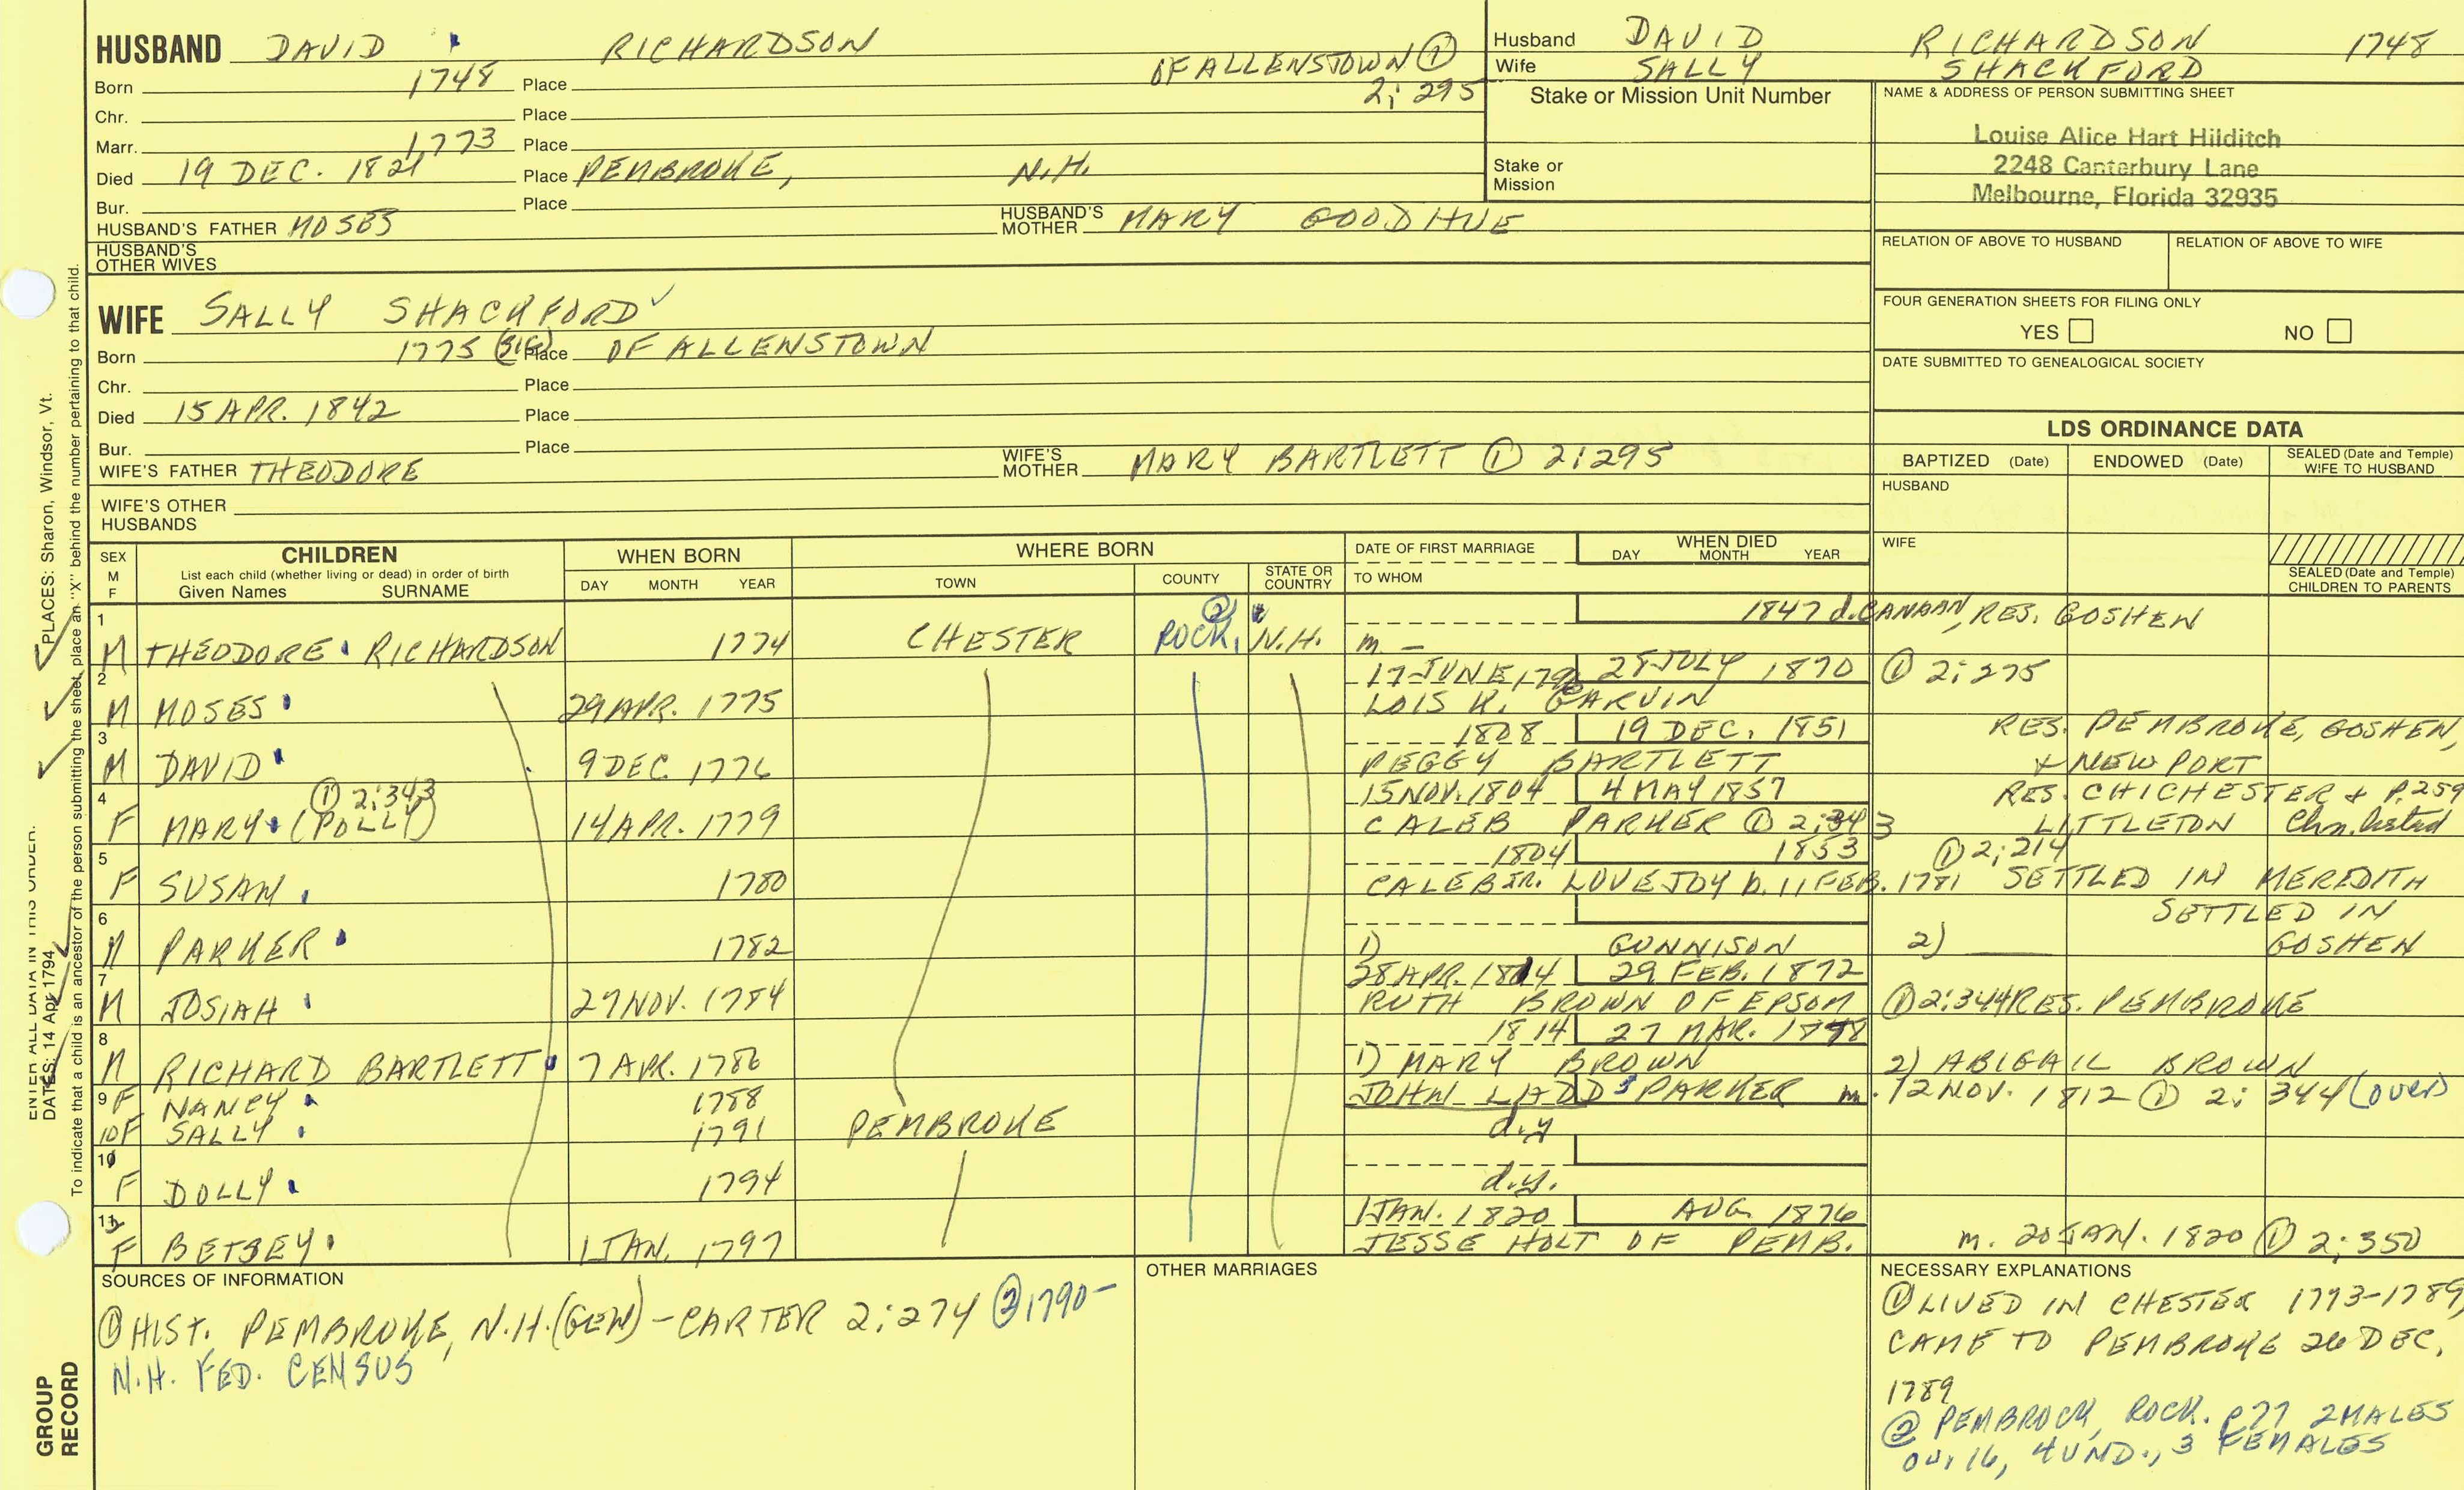 HUSBAND DAVID RICHARDSON
OF ALLENSTOWN ①
Born 1748 Place 2; 295
Chr. Place
Marr. 1773 Place
Died 19 DEC. 1821 Place PEMBROKE, N.H.
Bur. Place
HUSBAND'S FATHER MOSES HUSBAND'S MOTHER MARY GOODHUE
HUSBAND'S OTHER WIVES
WIFE SALLY SHACKFORD ✓
Born 1775 (SIC) Place OF ALLENSTOWN
Chr. Place
Died 15 APR. 1842 Place
Bur. Place
WIFE'S FATHER THEODORE WIFE'S MOTHER MARY BARTLETT ① 2:295
WIFE'S OTHER HUSBANDS
Husband DAVID RICHARDSON 1748
Wife SALLY SHACKFORD
Stake or Mission Unit Number
Stake or Mission
NAME & ADDRESS OF PERSON SUBMITTING SHEET
Louise Alice Hart Hilditch
2248 Canterbury Lane
Melbourne, Florida 32935
RELATION OF ABOVE TO HUSBAND RELATION OF ABOVE TO WIFE
FOUR GENERATION SHEETS FOR FILING ONLY
YES NO
DATE SUBMITTED TO GENEALOGICAL SOCIETY
LDS ORDINANCE DATA
BAPTIZED (Date) ENDOWED (Date) SEALED (Date and Temple) WIFE TO HUSBAND
HUSBAND
WIFE
SEALED (Date and Temple) CHILDREN TO PARENTS
SEX M F
CHILDREN
List each child (whether living or dead) in order of birth
Given Names SURNAME
WHEN BORN
DAY MONTH YEAR
WHERE BORN
TOWN COUNTY STATE OR COUNTRY
DATE OF FIRST MARRIAGE
TO WHOM
WHEN DIED
DAY MONTH YEAR
1 ② 1847 d. CANAAN, RES. GOSHEN
M THEODORE RICHARDSON 1774 CHESTER ROCK. N.H. m. —
2 17 JUNE, 28 JULY 1870 ① 2; 275
M MOSES 29 APR. 1775 LOIS K. GARVIN
3 1808 19 DEC. 1851 RES. PEMBROKE, GOSHEN,
M DAVID 9 DEC 1776 PEGGY BARTLETT + NEWPORT
4 ① 2;343 15 NOV. 1804 4 MAY 1857 RES. CHICHESTER + P. 259
F MARY (POLLY) 14 APR. 1779 CALEB PARKER ① 2;343 LITTLETON Chn. listed
5 1804 1853 ① 2; 214
F SUSAN 1780 CALEB JR. LOVEJOY b. 11 FEB. 1781 SETTLED IN MEREDITH
6 SETTLED IN
M PARKER 1782 1) GUNNISON 2) GOSHEN
7 28 APR. 1814 29 FEB. 1872
M JOSIAH 27 NOV. 1784 RUTH BROWN OF EPSOM ① 2:344 RES. PEMBROKE
8 1814 27 MAR.
M RICHARD BARTLETT 7 APR. 1786 1) MARY BROWN 2) ABIGAIL BROWN
9 F NANCY 1788 JOHN LADD PARKER m. 12 NOV. 1812 ① 2; 344 (over)
10 F SALLY 1791 PEMBROKE d.y
10
F DOLLY 1794 d.y.
11 1 JAN. 1820 AUG. 1876
F BETSEY 1 JAN. 1797 JESSE HOLT OF PEMB. m. 20 JAN. 1820 ① 2; 350
SOURCES OF INFORMATION
① HIST. PEMBROKE, N.H. (GEN) - CARTER 2; 274 ② 1790 -
N.H. FED. CENSUS
OTHER MARRIAGES
NECESSARY EXPLANATIONS
① LIVED IN CHESTER 1773-1789,
CAME TO PEMBROKE 26 DEC.
1789
② PEMBROCK, ROCK. p 77 2 MALES
ov. 16, 4 UND., 3 FEMALES
ENTER ALL DATA IN THIS ORDER.
DATES: 14 Apr 1794 PLACES: Sharon, Windsor, Vt.
To indicate that a child is an ancestor of the person submitting the sheet, place an "X" behind the number pertaining to that child.
GROUP
RECORD